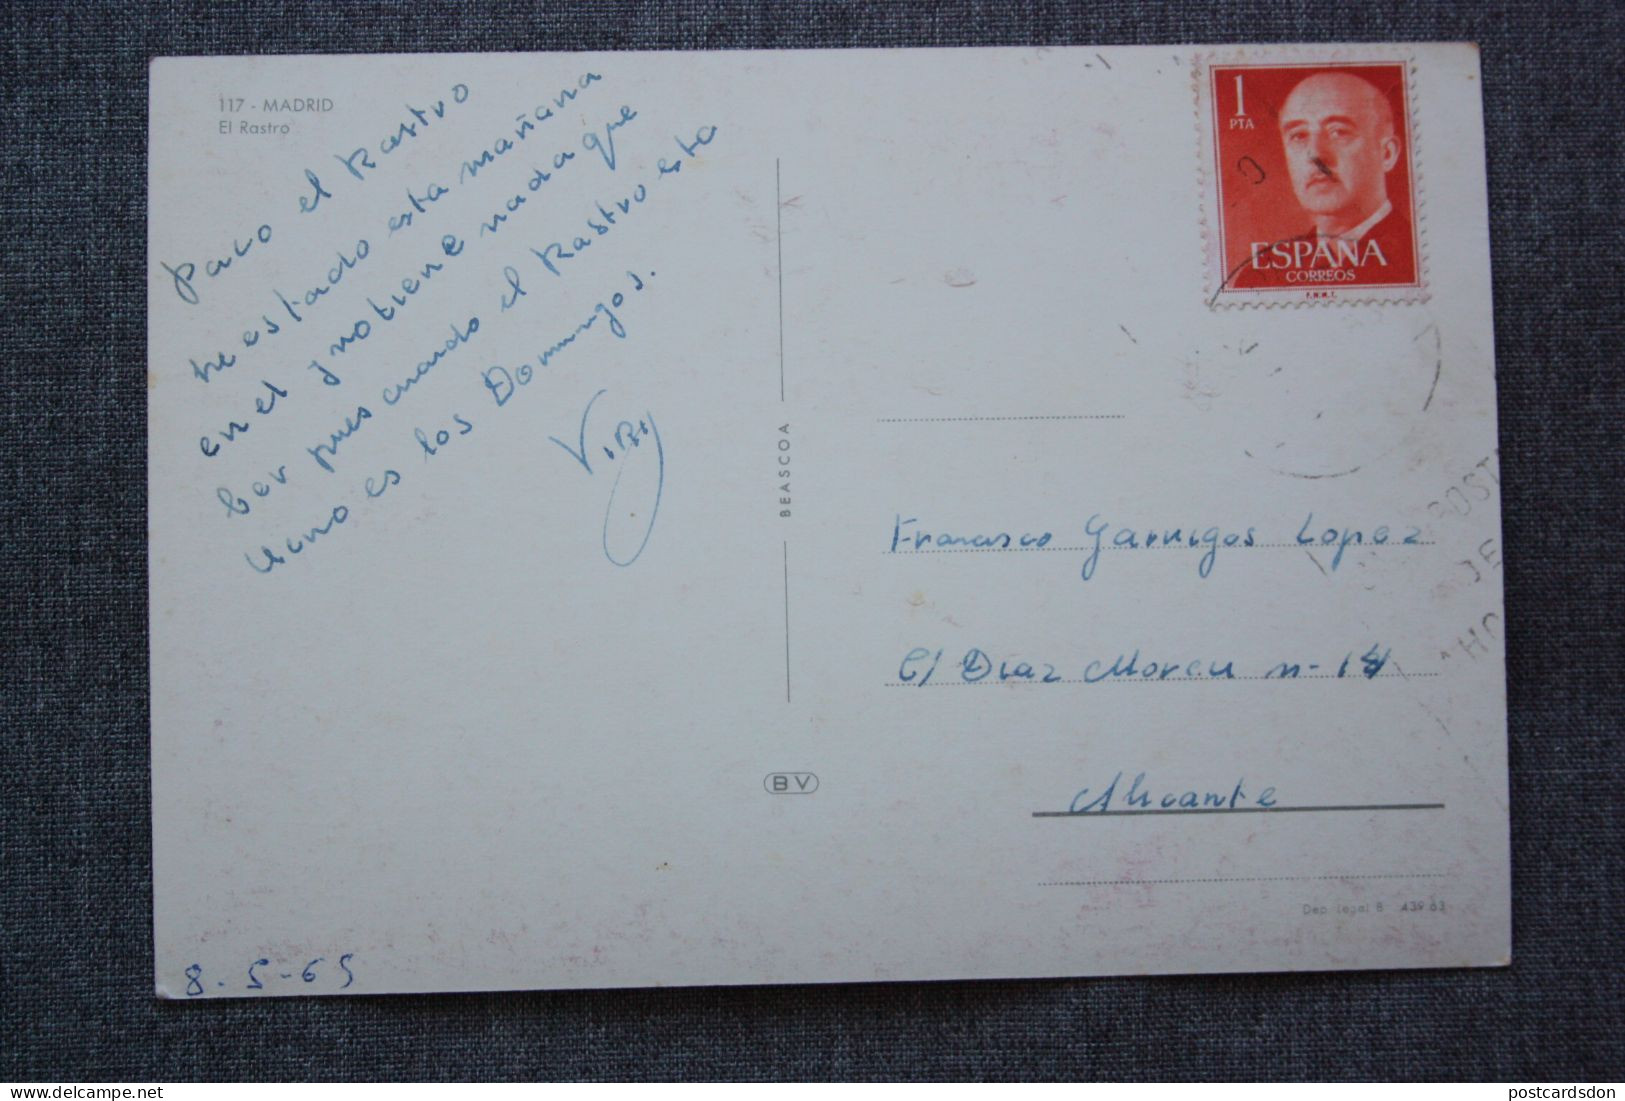 117 - MADRID
El Rastro
Paco el Rastro
he estado esta mañana
en el y no tiene nada que
ber pues cuando el Rastro esta
lleno es los Domingos.
Viri
BEASCOA
BV
1
PTA
ESPAÑA
CORREOS
F.N.M.T.
POST
DE
HO
Francisco Garrigos Lopez
C/ Diaz Moreu n-14
Alicante
Dep. Legal B 439 63
8-5-65
postcardsdon